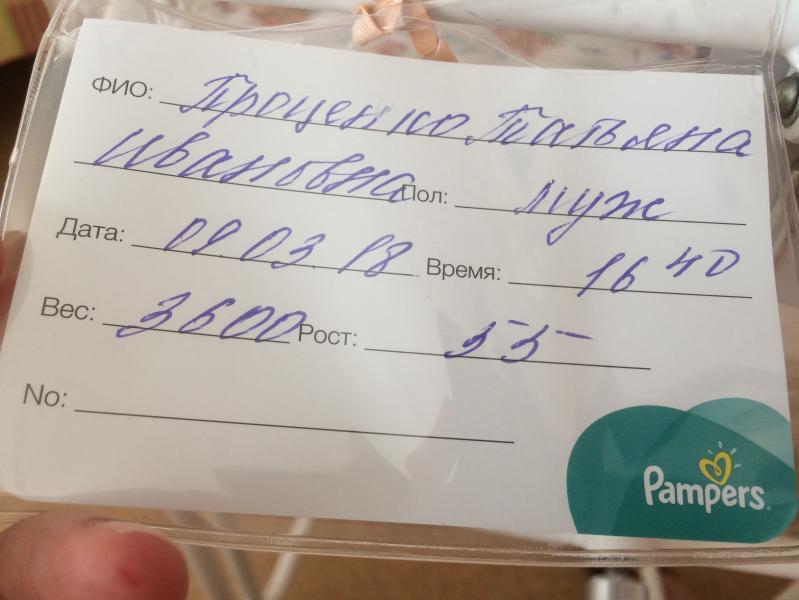 ФИО: Проценко Татьяна
Ивановна Пол: муж
Дата: 09.03.18 Время: 16 40
Вес: 3600 Рост: 55
No:
Pampers